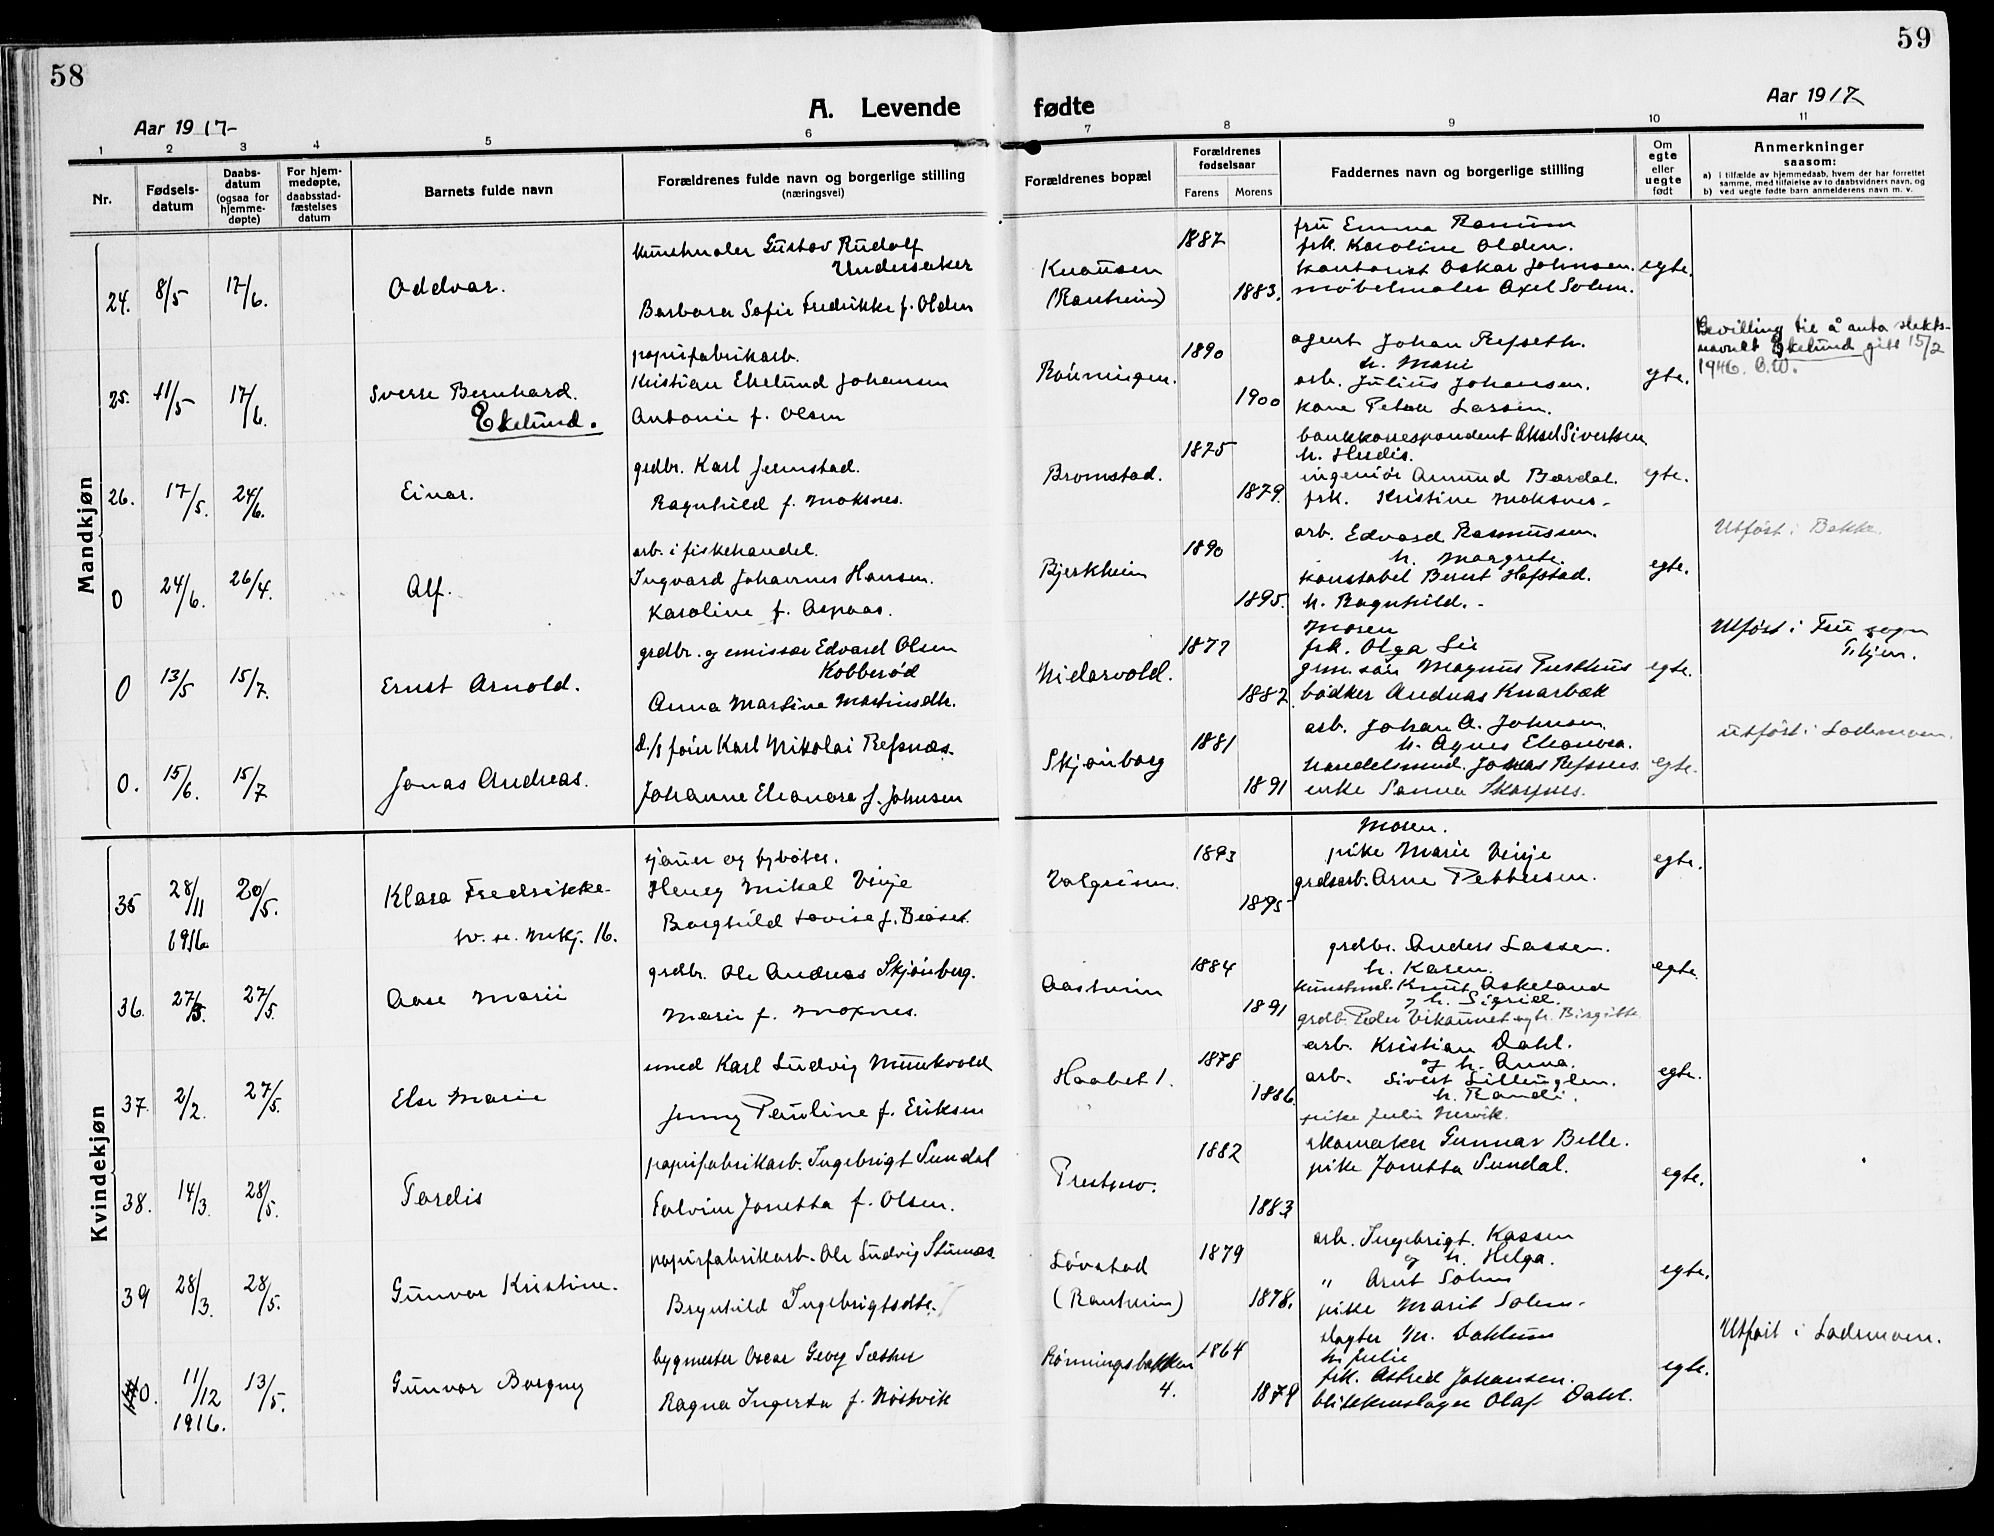 58
59
A. Levende fødte
Aar 1917
Aar 1917
1 2 3 4 5 6 7 8 9 10 11
Nr.
Fødsels-
datum
Daabs-
datum
(ogsaa for
hjemme-
døpte)
For hjem-
medøpte,
daabsstad-
fæstelses
datum
Barnets fulde navn
Forældrenes fulde navn og borgerlige stilling
(næringsvei)
Forældrenes bopæl
Forældrenes
fødselsaar
Farens
Morens
Faddernes navn og borgerlige stilling
Om
egte
eller
uegte
født
Anmerkninger
saasom:
a) i tilfælde av hjemmedaab, hvem der har forrettet
samme, med tilføielse av to daabsvidners navn, og
b) ved uegte fødte barn anmelderens navn m. v.
Mandkjøn
24. 8/5 17/6. Oddvar.
kunstmaler Gustav Rudolf
Undersaker
Barbara Sofie Fredrikke f. Olden
Knausen
(Ranheim)
1887
1883.
fru Emma Ranum
frk. Karoline Olden.
kontorist Oskar Johnsen.
møbelmaler Axel Solem.
egte.
25. 11/5 17/6. Sverre Bernhard.
Ekelund.
papirfabrikarb.
Kristian Ekelund Johansen
Antonie f. Olsen
Rønningen.
1890
1900
agent Johan Refseth.
h. Marie
arb. Julius Johansen.
kone Petra Lassen.
egte.
Bevilling til å anta slekts-
navnet Ekelund gitt 15/2
1946. O.W.
26. 17/5. 24/6. Einar.
grdbr. Karl Jermstad.
Ragnhild f. Moksnes.
Bromstad.
1875
1879.
bankkorrespondent Aksel Sivertsen
h. Herdis.
ingeniør Amund Bærdal.
frk. Kristine Moksnes.
egte.
0 24/6. 26/4. Alf.
arb. i fiskehandel.
Ingvard Johannes Hansen.
Karoline f. Aspaas.
Bjerkheim
1890
1895.
arb. Edvard Rasmussen.
h. Margrete.
konstabel Bernt Hofstad.
h. Ragnhild.
egte.
Utført i Bakke.
0 13/5 15/7. Ernst Arnold.
grdbr. og emissær Edvard Olsen
Kobberød
Anna Martine Martinsdtr.
Nidarvold.
1877
1882.
Moren
frk. Olga Lie
grm.søn Magnus Presthus
bødker Andreas Knarbak
egte.
Utført i Frue sogn
Tr.hjem.
0. 15/6. 15/7 Jonas Andreas.
Karl Nikolai Refsnæs.
Johanne Eleonora f. Johnsen
Skjønborg
1881
1891
arb. Johan A. Johnsen.
h. Agnes Eleonora.
handelsmand. Jonas Refsnes.
enke Sanna Skarpnes.
egte.
utført i Lademoen.
Kvindekjøn
35 28/11 1916 20/5. Klara Fredrikke
se. Mkj. 16.
sjauer og fyrbøter.
Henry Mikal Vinje
Borghild Lovise f. Brøset.
Valgrinn.
1893
1895
Moren.
pike Marie Vinje
grdsarb. Arne Pettersen.
egte.
36. 27/3. 27/5. Aase Marie
grdbr. Ole Andreas Skjønberg.
Marie f. Moxnes.
Aasheim
1884
1891
grdbr. Anders Lassen.
h. Karen.
kunstmal. Knut Askeland
og h. Sigrid.
grdb. Peder Vikaunet og h. Birgitte
egte.
37. 2/2. 27/5. Else Marie
smed Karl Ludvig Munkvold
Jenny Pauline f. Eriksen
Haabet 1.
1878
1886.
arb. Kristian Dahl.
og h. Anna.
arb. Sivert
h. Randi.
pike Julie
egte.
38. 14/3. 28/5. Tordis
papirfabrikarb. Ingebrigt Sundal
Jonetta f. Olsen.
Prestmo.
1882
1883
skomaker Gunnar Belle.
pike Jonetta Sundal.
egte.
39 28/3. 28/5. Gunvor Kristine.
papirfabrikarb. Ole Ludvig
Brynhild Ingebrigtsdtr.
Løvstad
(Ranheim)
1879
1878.
arb. Ingebrigt. Kassen
og h. Helga.
" Arnt Solem
pike Marit Solem.
egte.
0. 11/12 1916. 13/5. Gunvor Borgny
bygmester Oscar Georg Sæther
Ragna Ingerta f. Nøstvik
Rønningsbakken
4.
1864
1879
slagter M. Dahlum
h. Julie
frk. Astrid Johansen.
blikkenslager Olaf Dahl.
egte.
Utført i Lademoen.